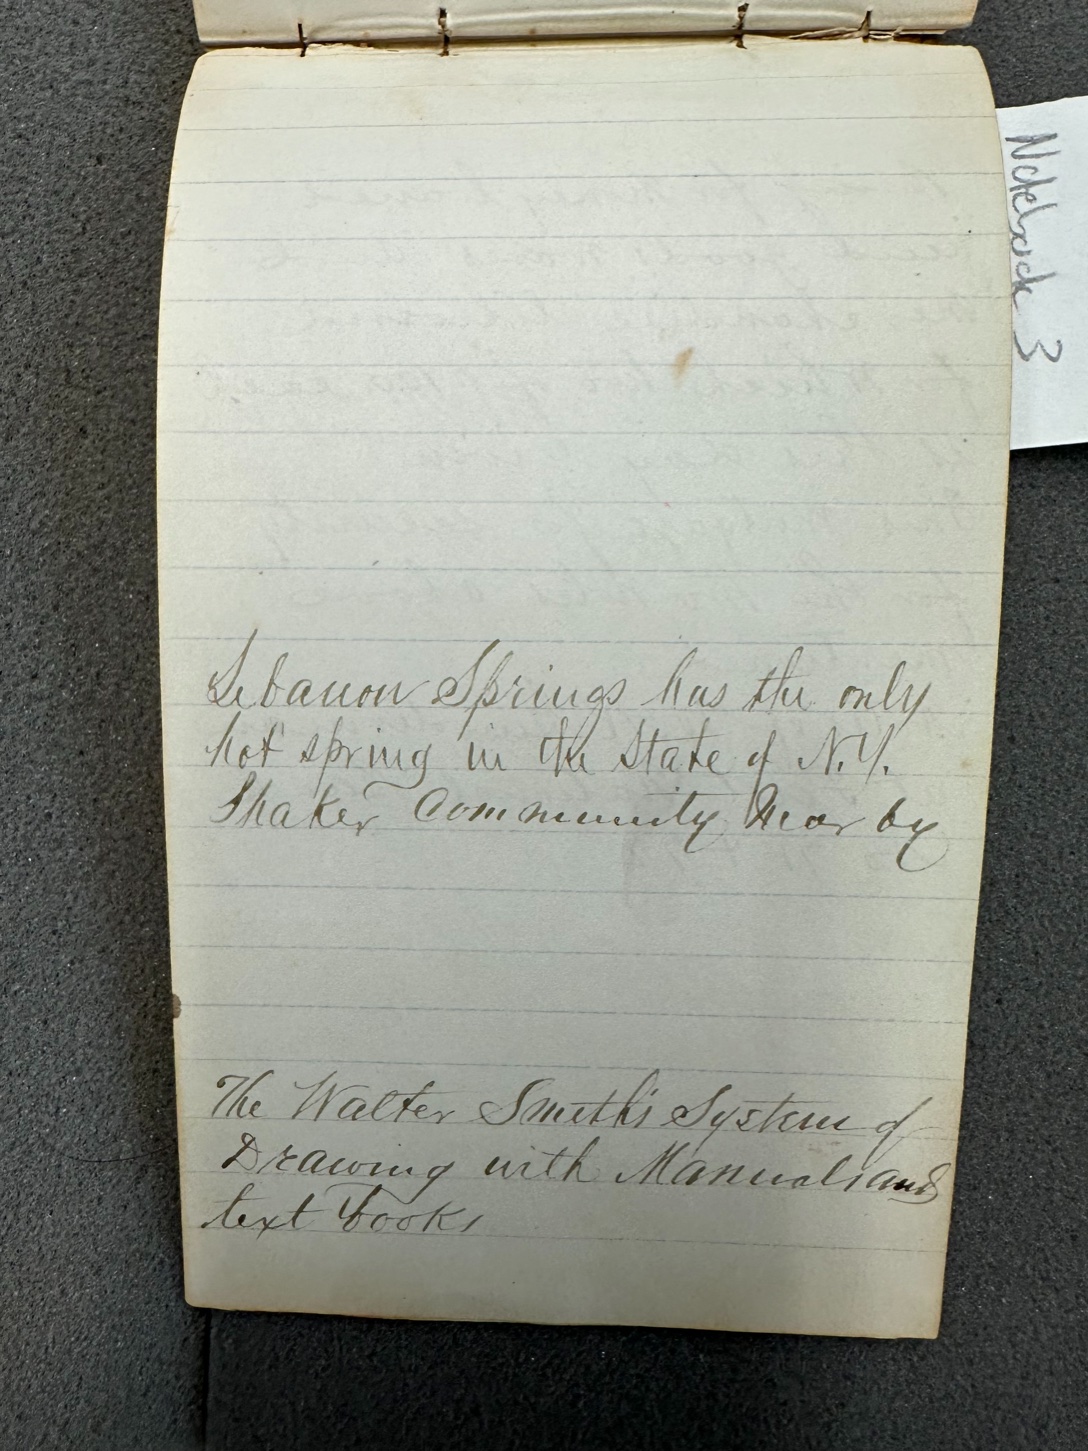 Lebanon Springs has the only
hot spring in the State of N.Y.
Shaker Community Near by
The Walter Smith's System of
Drawing with Manuals and
text books
Notebook 3